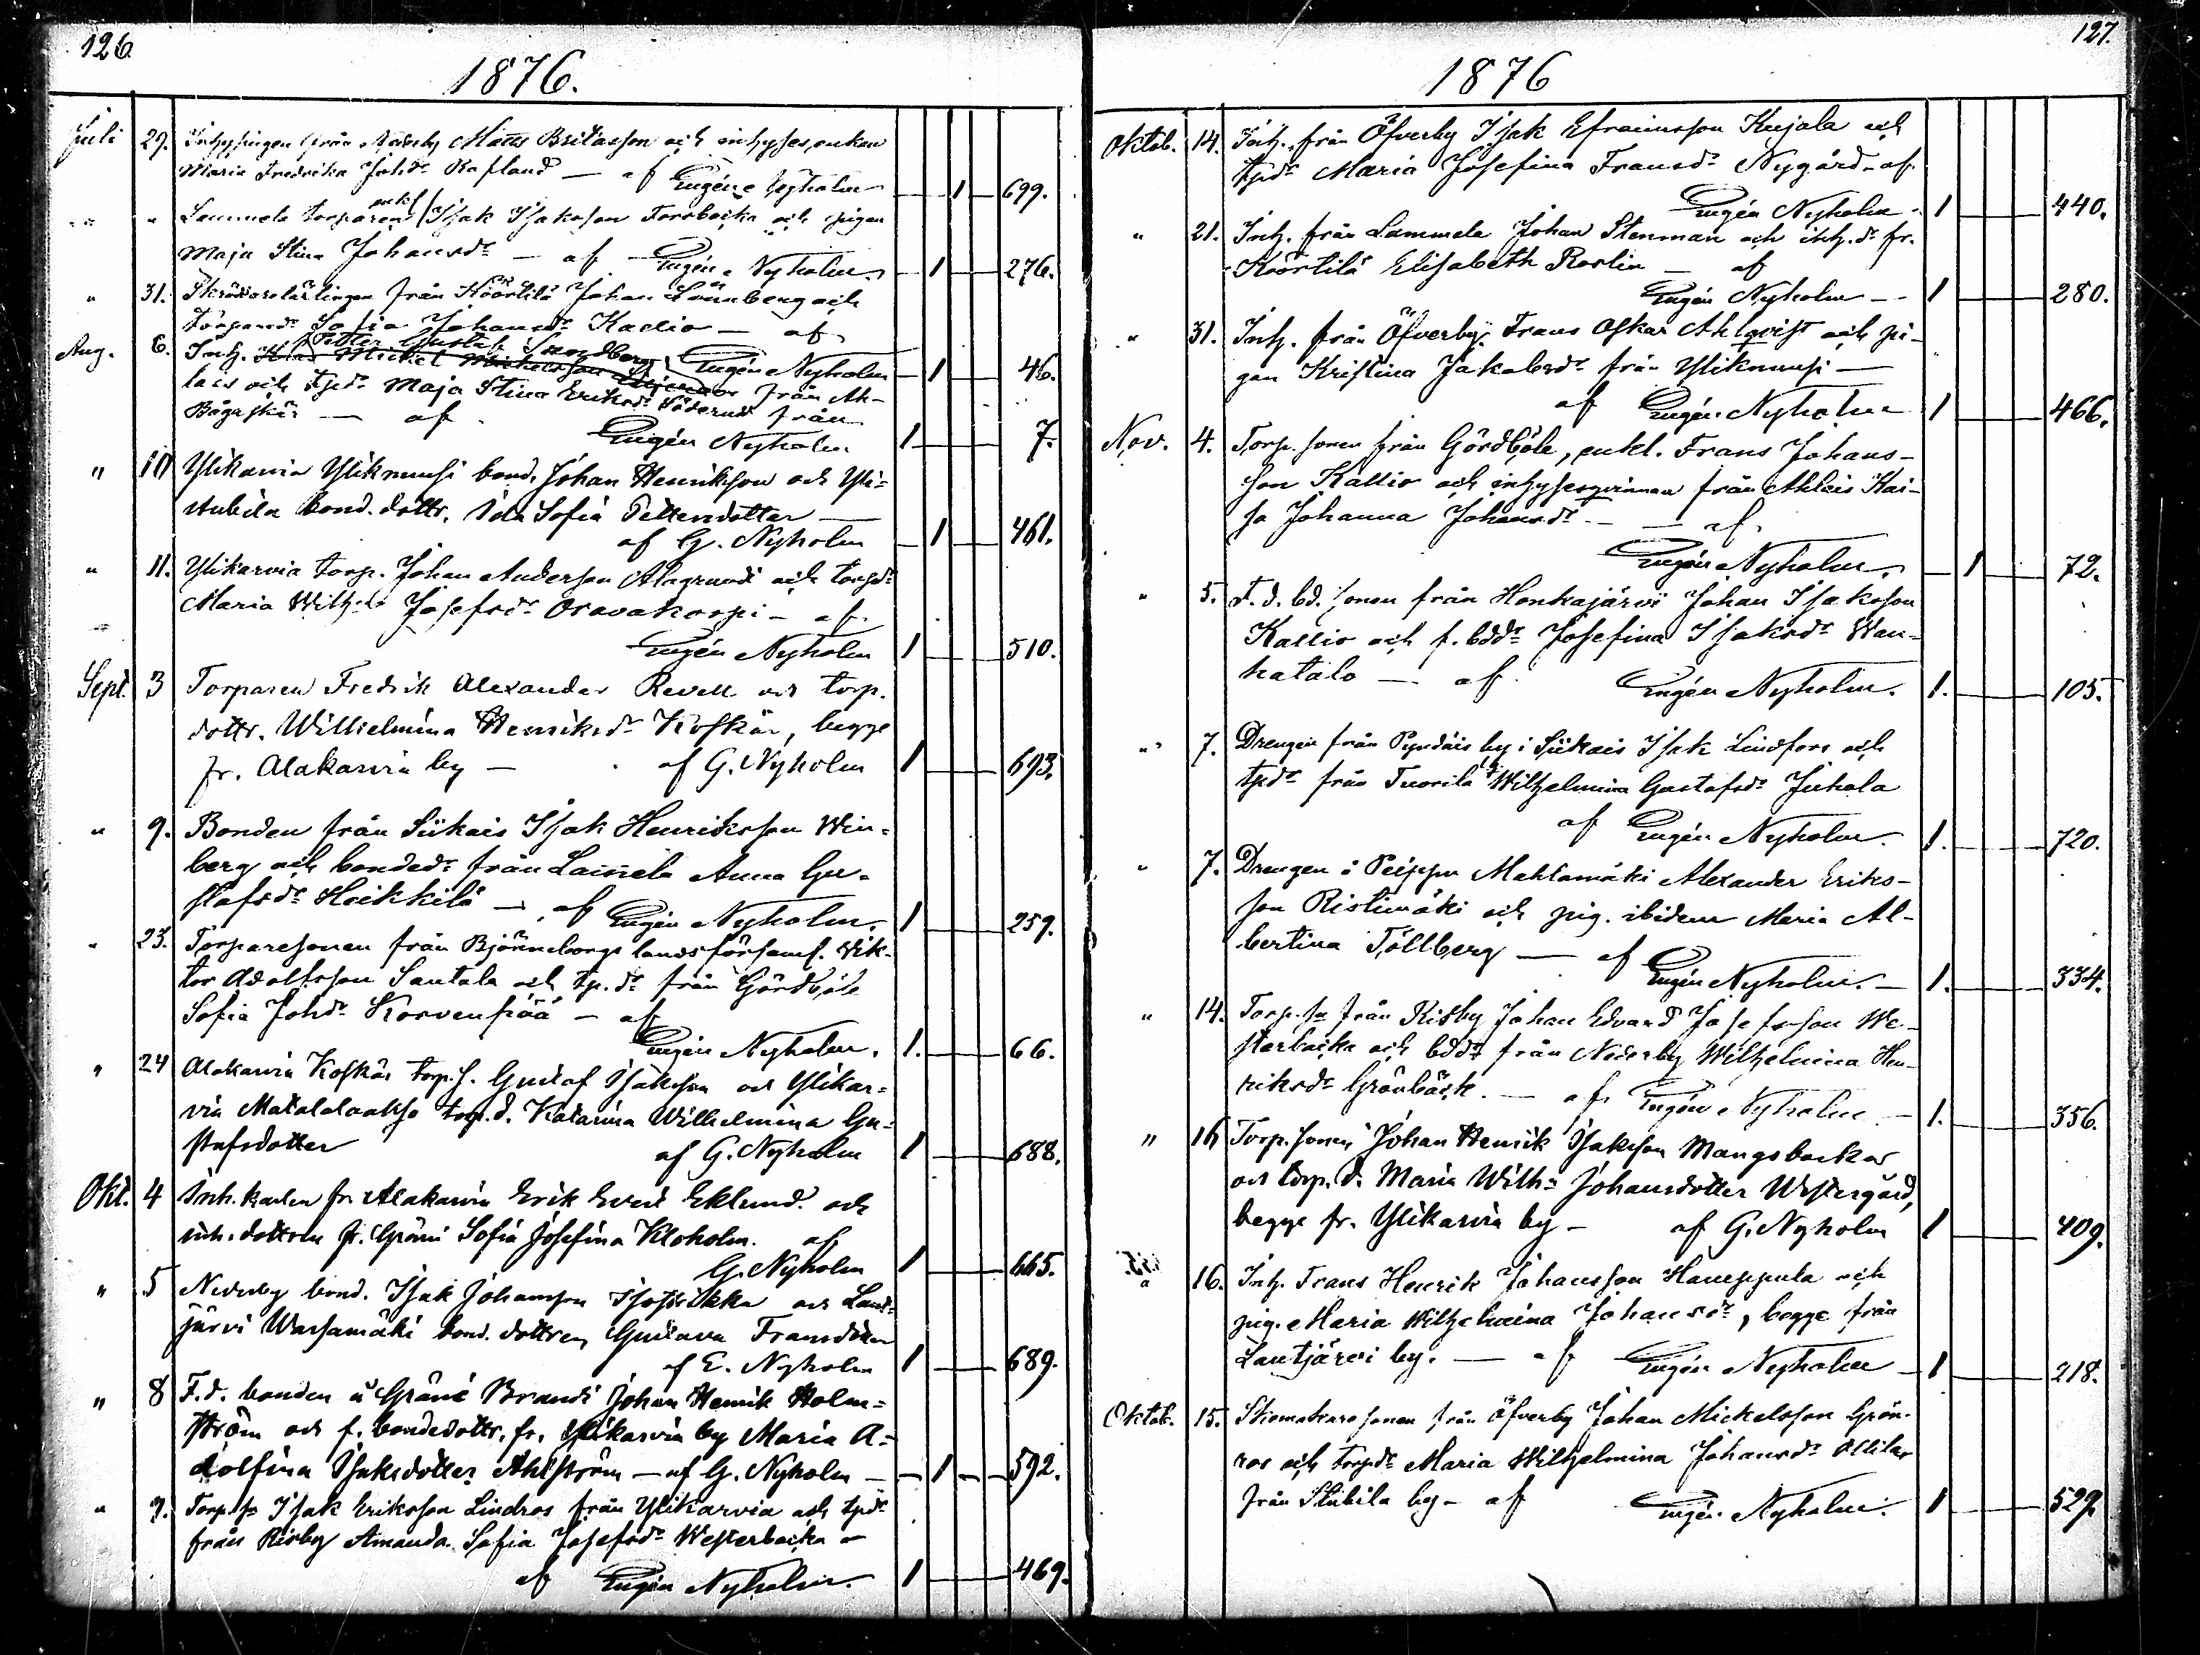 126.
1876.
Juli 29. Inhysingen från Nederby Matts Britasson och inhyses enkan
Maria Fredrika Johdr Rafland — af Eugéne Nyholm 1 699.
" " Lammela torparen enkl. Isak Isaksson Forsbacka och pigan
Maja Stina Johansdr — af Eugéne Nyholm 1 276.
" 31. Skräddarelärlingen från Köörtilä Johan Lönnberg och
torparedr Sofia Johansdr Kallio — af
Eugén Nyholm 1 46.
Aug. 6. Inh. Petter Gustaf Sandberg från Ah-
lais och tpdr Maja Stina Eriksdr Söderlund från
Bågaskär — af Eugén Nyholm 1 7.
" 10 Ylikarvia Yliknuusi bond. Johan Henriksson och Yli-
stubila bond. dottr. Ida Sofia Pettersdotter —
af G. Nyholm 1 461.
" 11. Ylikarvia torp. Johan Andersson Alagrundi och torpdr
Maria Wilh. Josefsdr Oravakoski — af
Eugén Nyholm 1 510.
Sept. 3 Torparen Fredrik Alexander Revell och torp.
dottr. Wilhelmina Henriksdr Koskär, begge
fr. Alakarvia by — af G. Nyholm 1 693.
" 9. Bonden från Siikais Isak Henriksson Win-
berg och bondedr från Lassila Anna Gu-
stafsdr Heikkilä — af Eugén Nyholm. 1 259.
" 23. Torparesonen från Björneborgs landsförsaml. Wik-
tor Adolfsson Santala och tp.dr från Gårdböle
Sofia Johdr Korvenpää — af
Eugén Nyholm. 1. 66.
" 24 Alakarvia Koskär torp.s. Gustaf Isaksson och Ylikar-
via Matalalaakso torp.d. Katarina Wilhelmina Gu-
stafsdotter af G. Nyholm 1 688.
Okt. 4 Inh. karlen fr. Alakarvia Erik Evert Eklund och
inh. dottren fr. Gräni Sofia Josefina Kloholm. af
G. Nyholm 1 665.
" 5 Nederby bond. Isak Johansson Isosikka och Lant-
järvi Warsamäki bond. dottren Gustava Fransdotter
af E. Nyholm 1 689.
" 8 F.d. bonden å Gräni Brandt Johan Henrik Holm-
ström och f. bondedottr. fr. Ylikarvia by Maria A-
dolfina Isaksdotter Ahlström — af G. Nyholm — 1 592.
" 9. Torp.s Isak Eriksson Lindros från Ylikarvia och tpdr
från Risby Amanda Sofia Josefsdr Westerbacka —
af Eugén Nyholm. 1 469.
127.
1876
Oktob. 14. Inh. från Öfverby Isak Efraimsson Kujala och
tpdr Maria Josefina Fransdr Nygård — af
Eugén Nyholm. 1 440.
" 21. Inh. från Lammela Johan Stenman och inh.dr fr.
Köörtilä Elisabeth Roslin — af
Eugén Nyholm — 1 280.
" 31. Inh. från Öfverby Frans Oskar Ahlqvist och pi-
gan Kristina Jakobsdr från Yliknuusi —
af Eugén Nyholm 1 466.
Nov. 4. Torp.sonen från Gårdböle, enkl. Frans Johans-
son Kallio och inhysesqvinnan från Ahlais Kai-
sa Johanna Johansdr — af
Eugén Nyholm. 1 72.
" 5. F.d. bd.sonen från Honkajärvi Johan Isaksson
Kallio och f. bddr Josefina Isaksdr Wan-
hatalo — af Eugén Nyholm. 1. 105.
" 7. Drengen från Pyndäis by i Siikais Isak Lindfors och
tpdr från Tuorila by Wilhelmina Gustafsdr Juhola
af Eugén Nyholm. 1. 720.
" 7. Drengen å Peippu Mahlamäki Alexander Eriks-
son Ristimäki och pig. ibidem Maria Al-
bertina Töllberg — af
Eugén Nyholm. — 1. 334.
" 14. Torp.s från Risby Johan Edvard Josefsson We-
sterbacka och bddr från Nederby Wilhelmina Hen-
riksdr Grönbäck. — af Eugén Nyholm — 1. 356.
" 16 Torp.sonen Johan Henrik Isaksson Mangsbacka
och torp.d. Maria Wilh: Johansdotter Westergård,
begge fr. Ylikarvia by — af G. Nyholm 1 409.
" 16. Inh. Frans Henrik Johansson Haueppula och
pig. Maria Wilhelmina Johansdr, begge från
Lantjärvi by. — af Eugén Nyholm — 1 218.
Oktob. 15. Skomakaresonen från Öfverby Johan Mickelsson Grön-
ros och torpdr Maria Wilhelmina Johansdr Ollila
från Stubila by — af Eugén Nyholm. 1 529